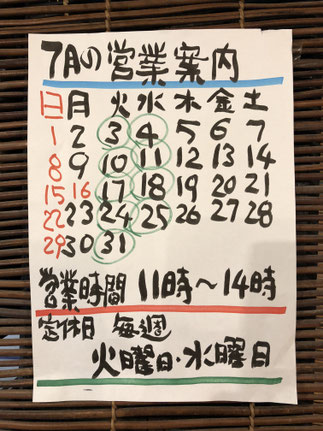 7月の営業案内
日 月 火 水 木 金 土
1 2 3 4 5 6 7
8 9 10 11 12 13 14
15 16 17 18 19 20 21
22 23 24 25 26 27 28
29 30 31
営業時間 11時～14時
定休日 毎週
火曜日・水曜日